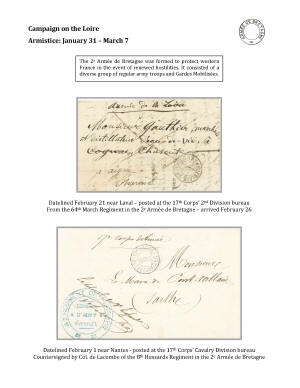 Campaign on the Loire
Armistice: January 31 – March 7
The 2e Armée de Bretagne was formed to protect western
France in the event of renewed hostilities. It consisted of a
diverse group of regular army troops and Gardes Mobilisées.
armée de la Loire
Monsieur Gauthier,
et distillateur
Cognac, Charente
Datelined February 21 near Laval – posted at the 17th Corps' 2nd Division bureau
From the 64th March Regiment in the 2e Armée de Bretagne – arrived February 26
17e Corps d'armée
Monsieur
Le Maire de
Sarthe
Datelined February 1 near Nantes - posted at the 17th Corps' Cavalry Division bureau
Countersigned by Col. de Lacombe of the 8th Hussards Regiment in the 2e Armée de Bretagne